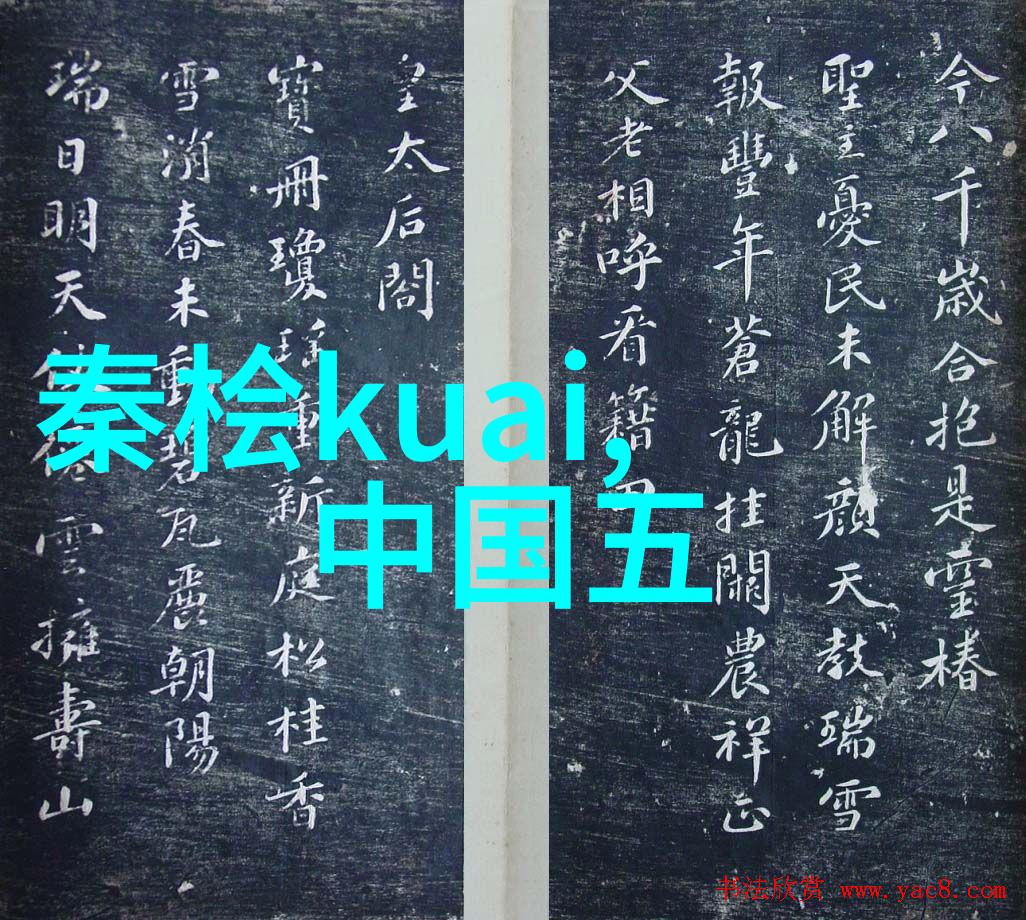 今八千歲合抱是靈椿
聖主憂民未解顏天教瑞雪
報豐年蒼龍挂闕農祥正
父老相呼看籍田
皇太后閣
寶冊瓊瑤重新庭松桂香
雪消春未動碧瓦麗朝陽
瑞日明天雲擁壽山
秦桧kuai,
中国五
书法欣赏 www.yac8.com